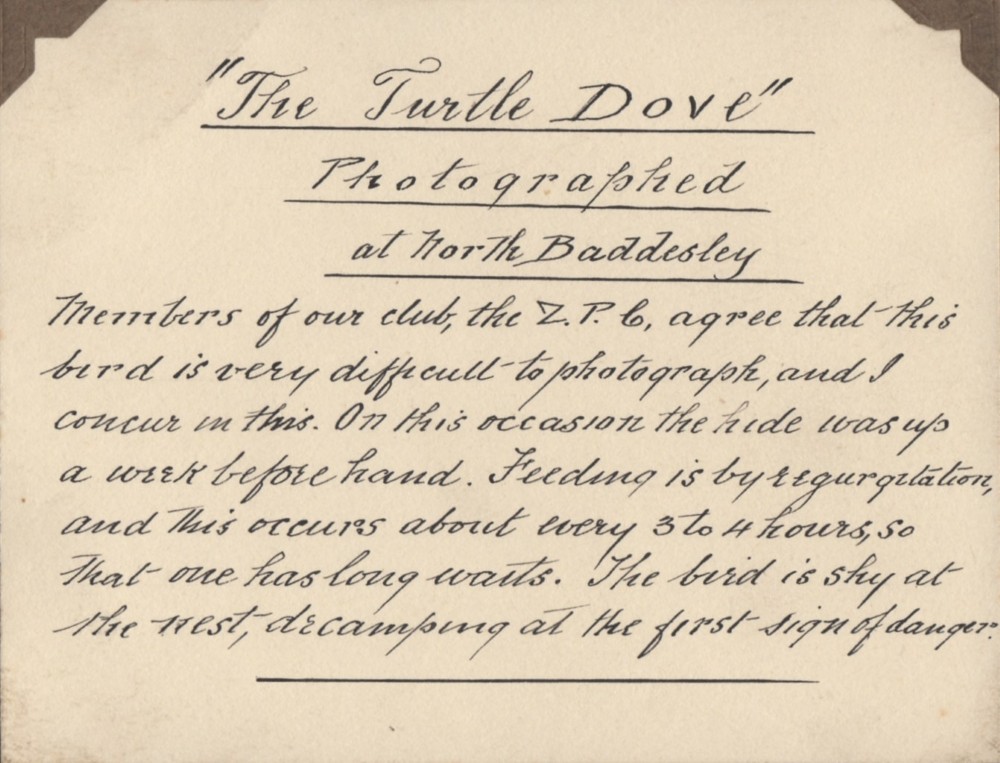 "The Turtle Dove"
Photographed
at North Baddesley
Members of our club, the Z.P.C, agree that this
bird is very difficult to photograph, and I
concur in this. On this occasion the hide was up
a week before hand. Feeding is by regurgitation,
and this occurs about every 3 to 4 hours, so
that one has long waits. The bird is shy at
the nest, decamping at the first sign of danger.